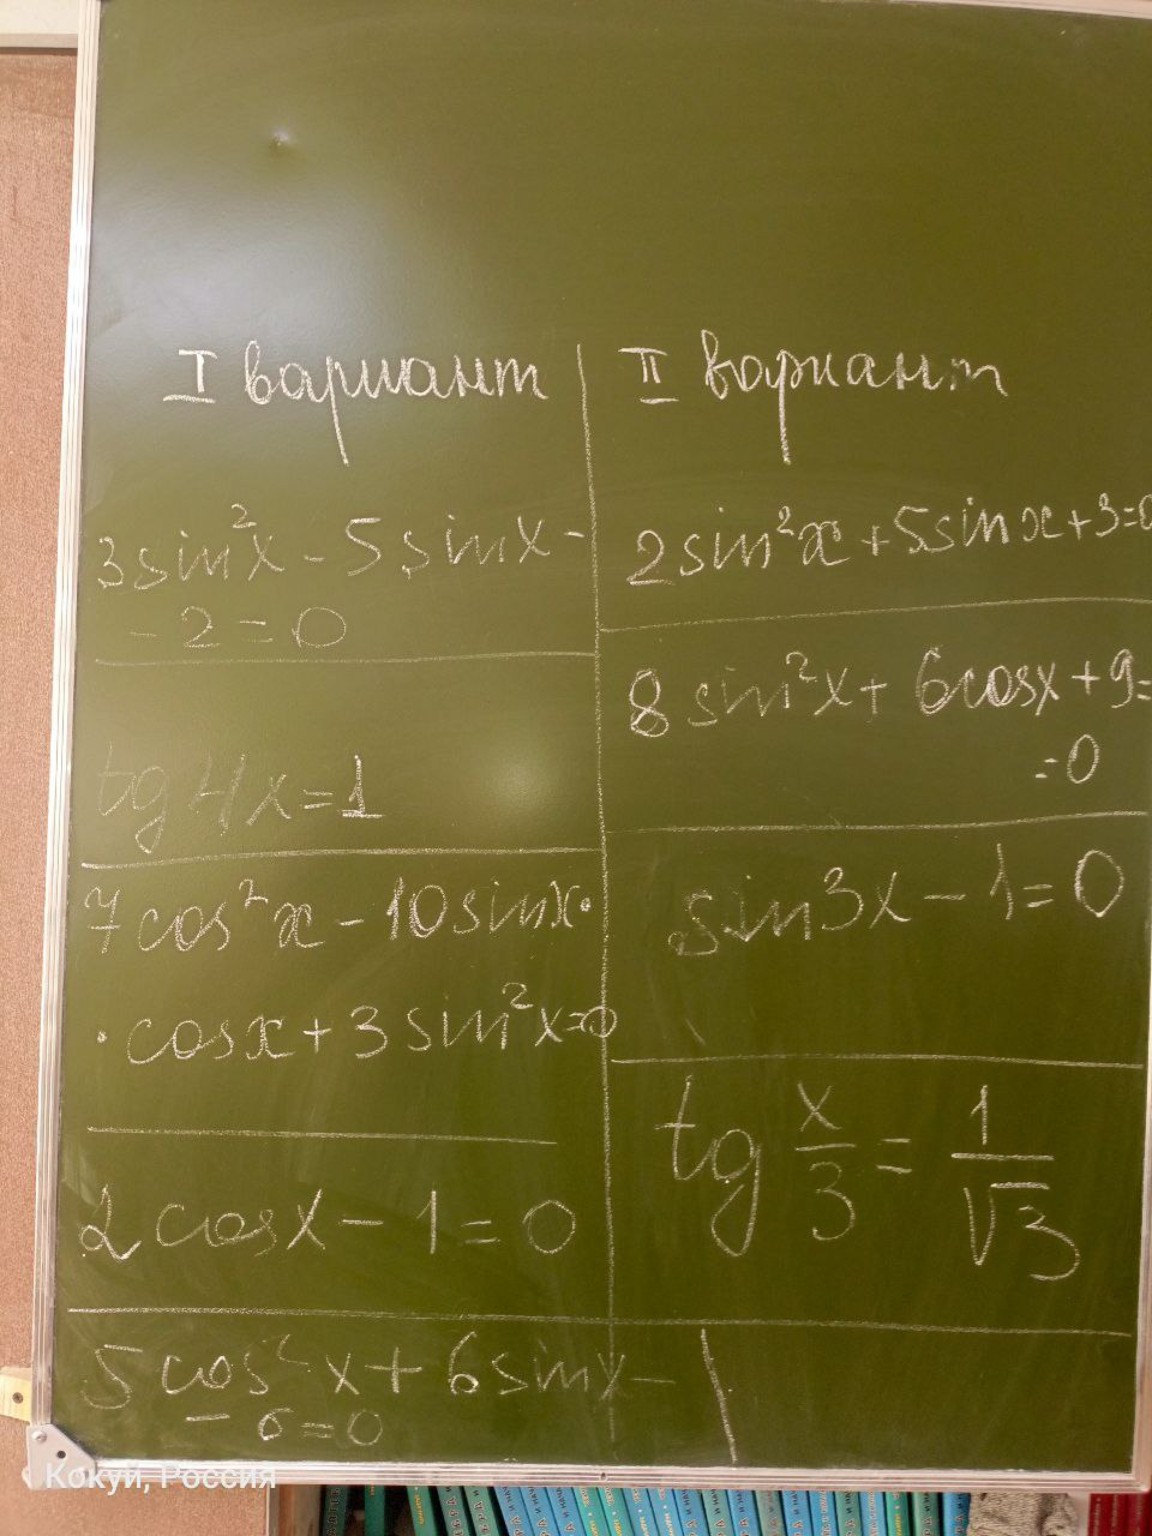 I вариант
3sin²x - 5sinx -
- 2 = 0
tg 4x = 1
7cos²x - 10sinx·
·cosx + 3sin²x=0
2cosx - 1 = 0
5cos²x + 6sinx -
- 6 = 0
II вариант
2sin²x + 5sinx + 3=0
8sin²x + 6cosx + 9=
=0
sin3x - 1 = 0
tg x/3 = 1/√3
Кокуй, Россия